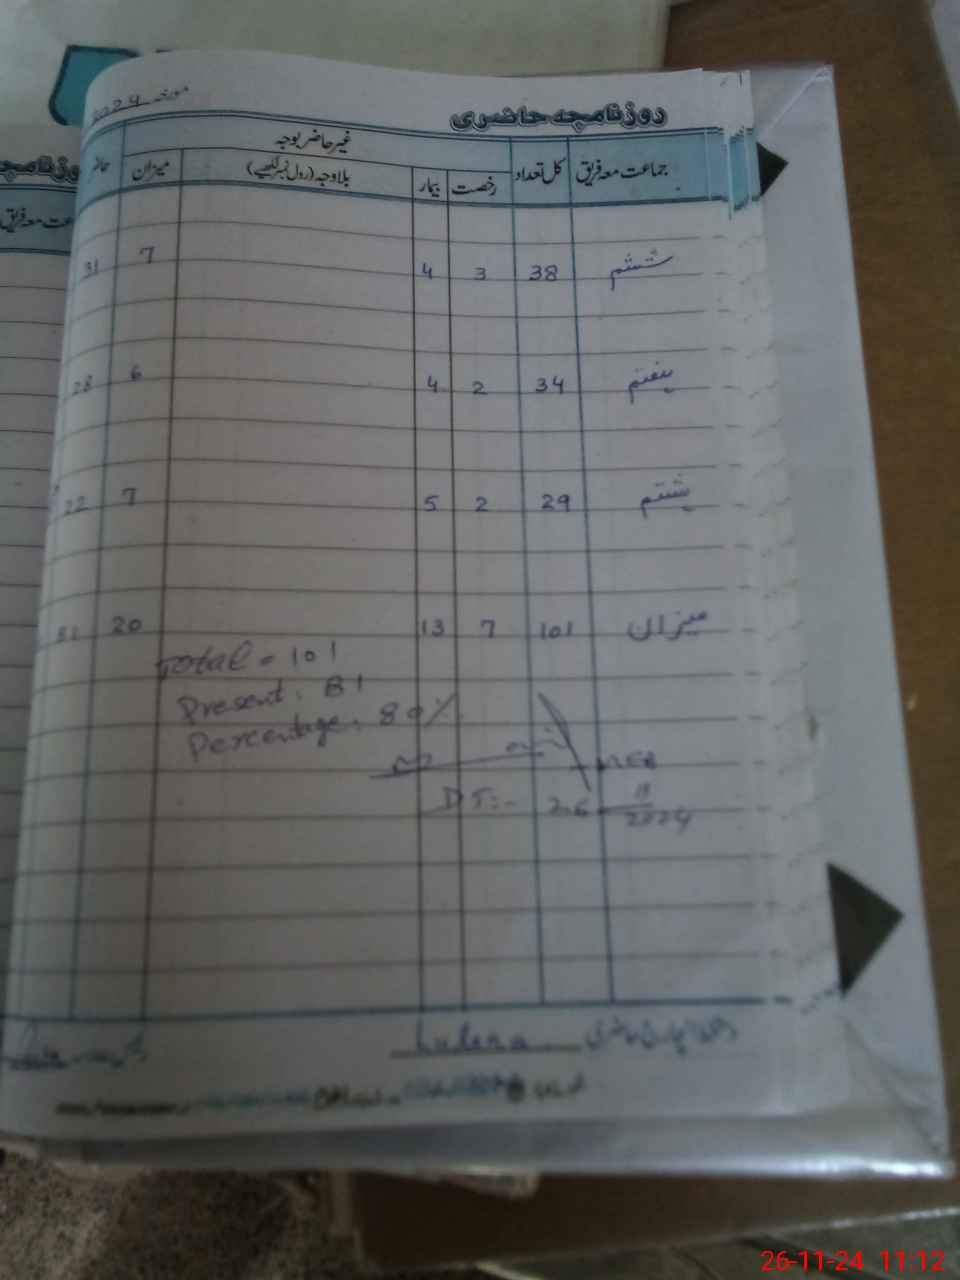 روزنامچہ حاضری
مورخہ 2024
جماعت معہ فریق کل تعداد غیر حاضر بوجہ حاضر
رخصت بیمار بلاوجہ (رول نمبر لکھیے) میزان
ششم 38 3 4 7 31
ہفتم 34 2 4 6 28
ہشتم 29 2 5 7 22
میزان 101 7 13 20 81
Total = 101
Present: 81
Percentage: 80%
DT:- 26-11-2024
26-11-24 11:12